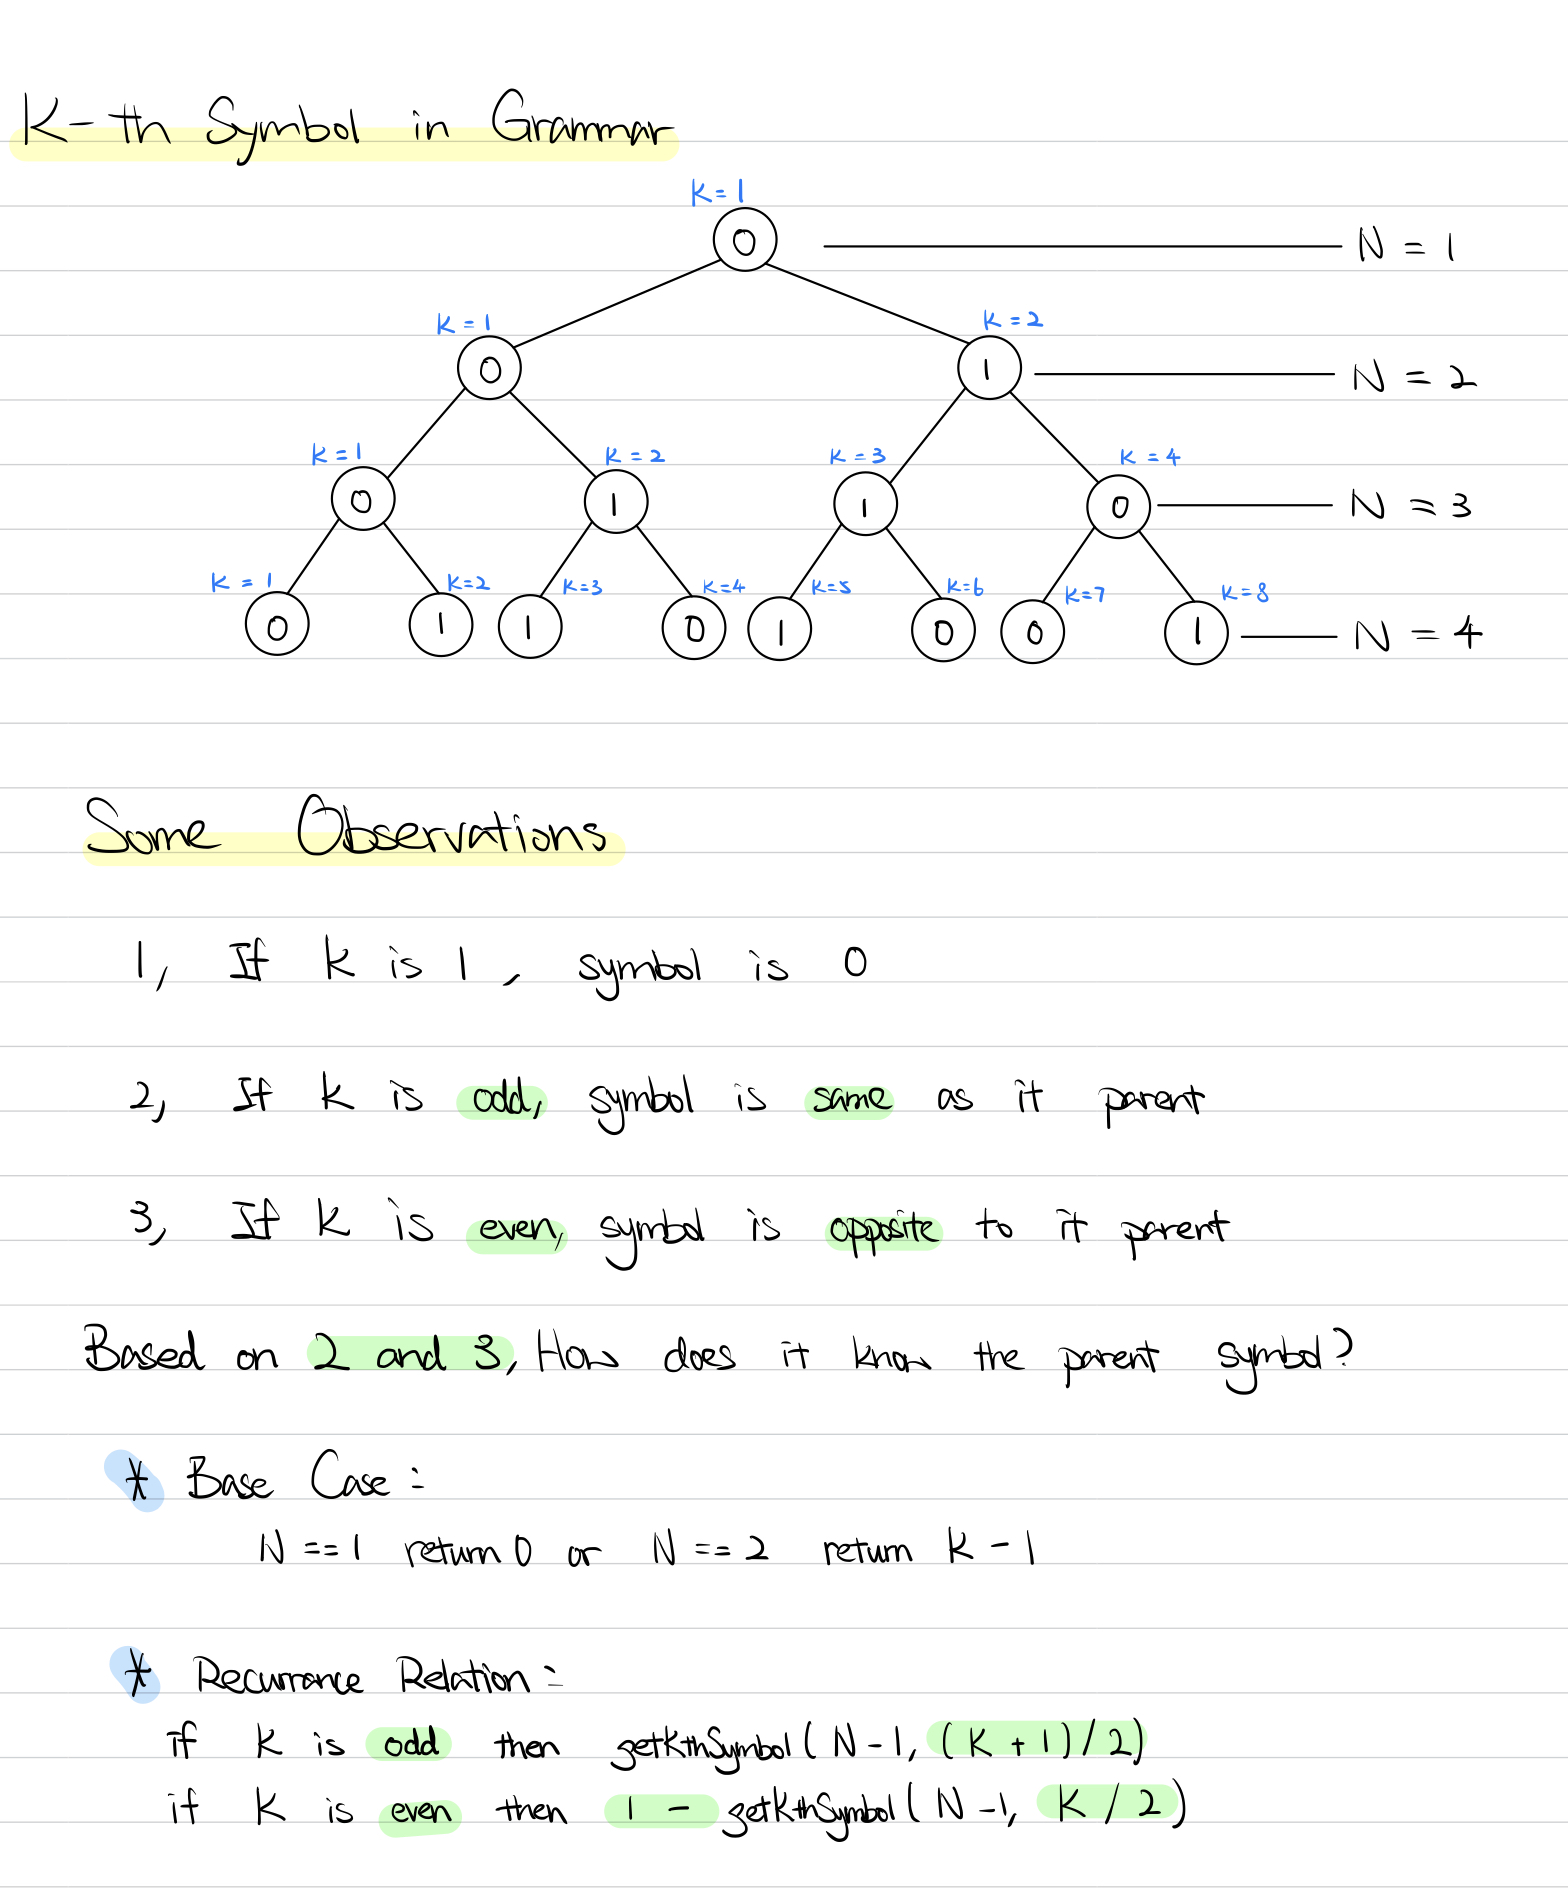 K-th Symbol in Grammar
K=1
0 N = 1
K=1 K=2
0 1 N = 2
K=1 K=2 K=3 K=4
0 1 1 0 N = 3
K=1 K=2 K=3 K=4 K=5 K=6 K=7 K=8
0 1 1 0 1 0 0 1 N = 4
Some Observations
1, If K is 1, symbol is 0
2, If K is odd, symbol is same as it parent
3, If K is even, symbol is opposite to it parent
Based on 2 and 3, How does it know the parent symbol?
* Base Case:
N ==1 return 0 or N == 2 return K - 1
* Recurrance Relation:
if K is odd then getKthSymbol(N-1, (K+1)/2)
if K is even then 1 - getKthSymbol(N-1, K/2)